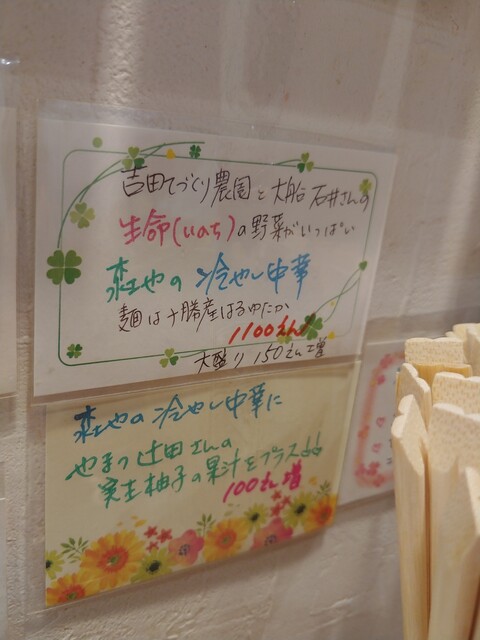 吉田てづくり農園と大船石井さんの
生命(いのち)の野菜がいっぱい
森也の冷やし中華
麺は十勝産はるゆたか
1100えん
大盛り150えん増
森也の冷やし中華に
やまつ辻田さんの
実生柚子の果汁をプラス
100えん増